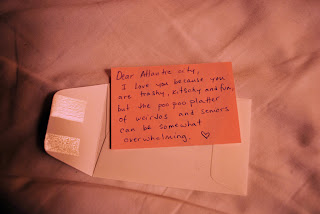 Dear Atlantic City,
I love you because you
are trashy, kitschy and fun,
but the poo poo platter
of weirdos and seniors
can be somewhat
overwhelming. ♡